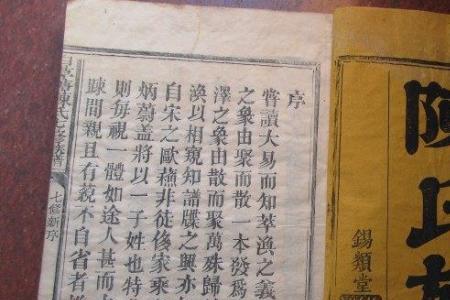 序
嘗讀大易而知萃渙之義
之象由聚而散一本發爲
澤之象由散而聚萬殊歸
渙以相窺知譜牒之興亦
自宋之歐蘇非徒後家乘
炳蒭蓋將以一子姓也特
則每視一體如途人甚而
踈間親且有藐不自省者
陳氏七修族譜
七修新序
陳氏
錫類堂